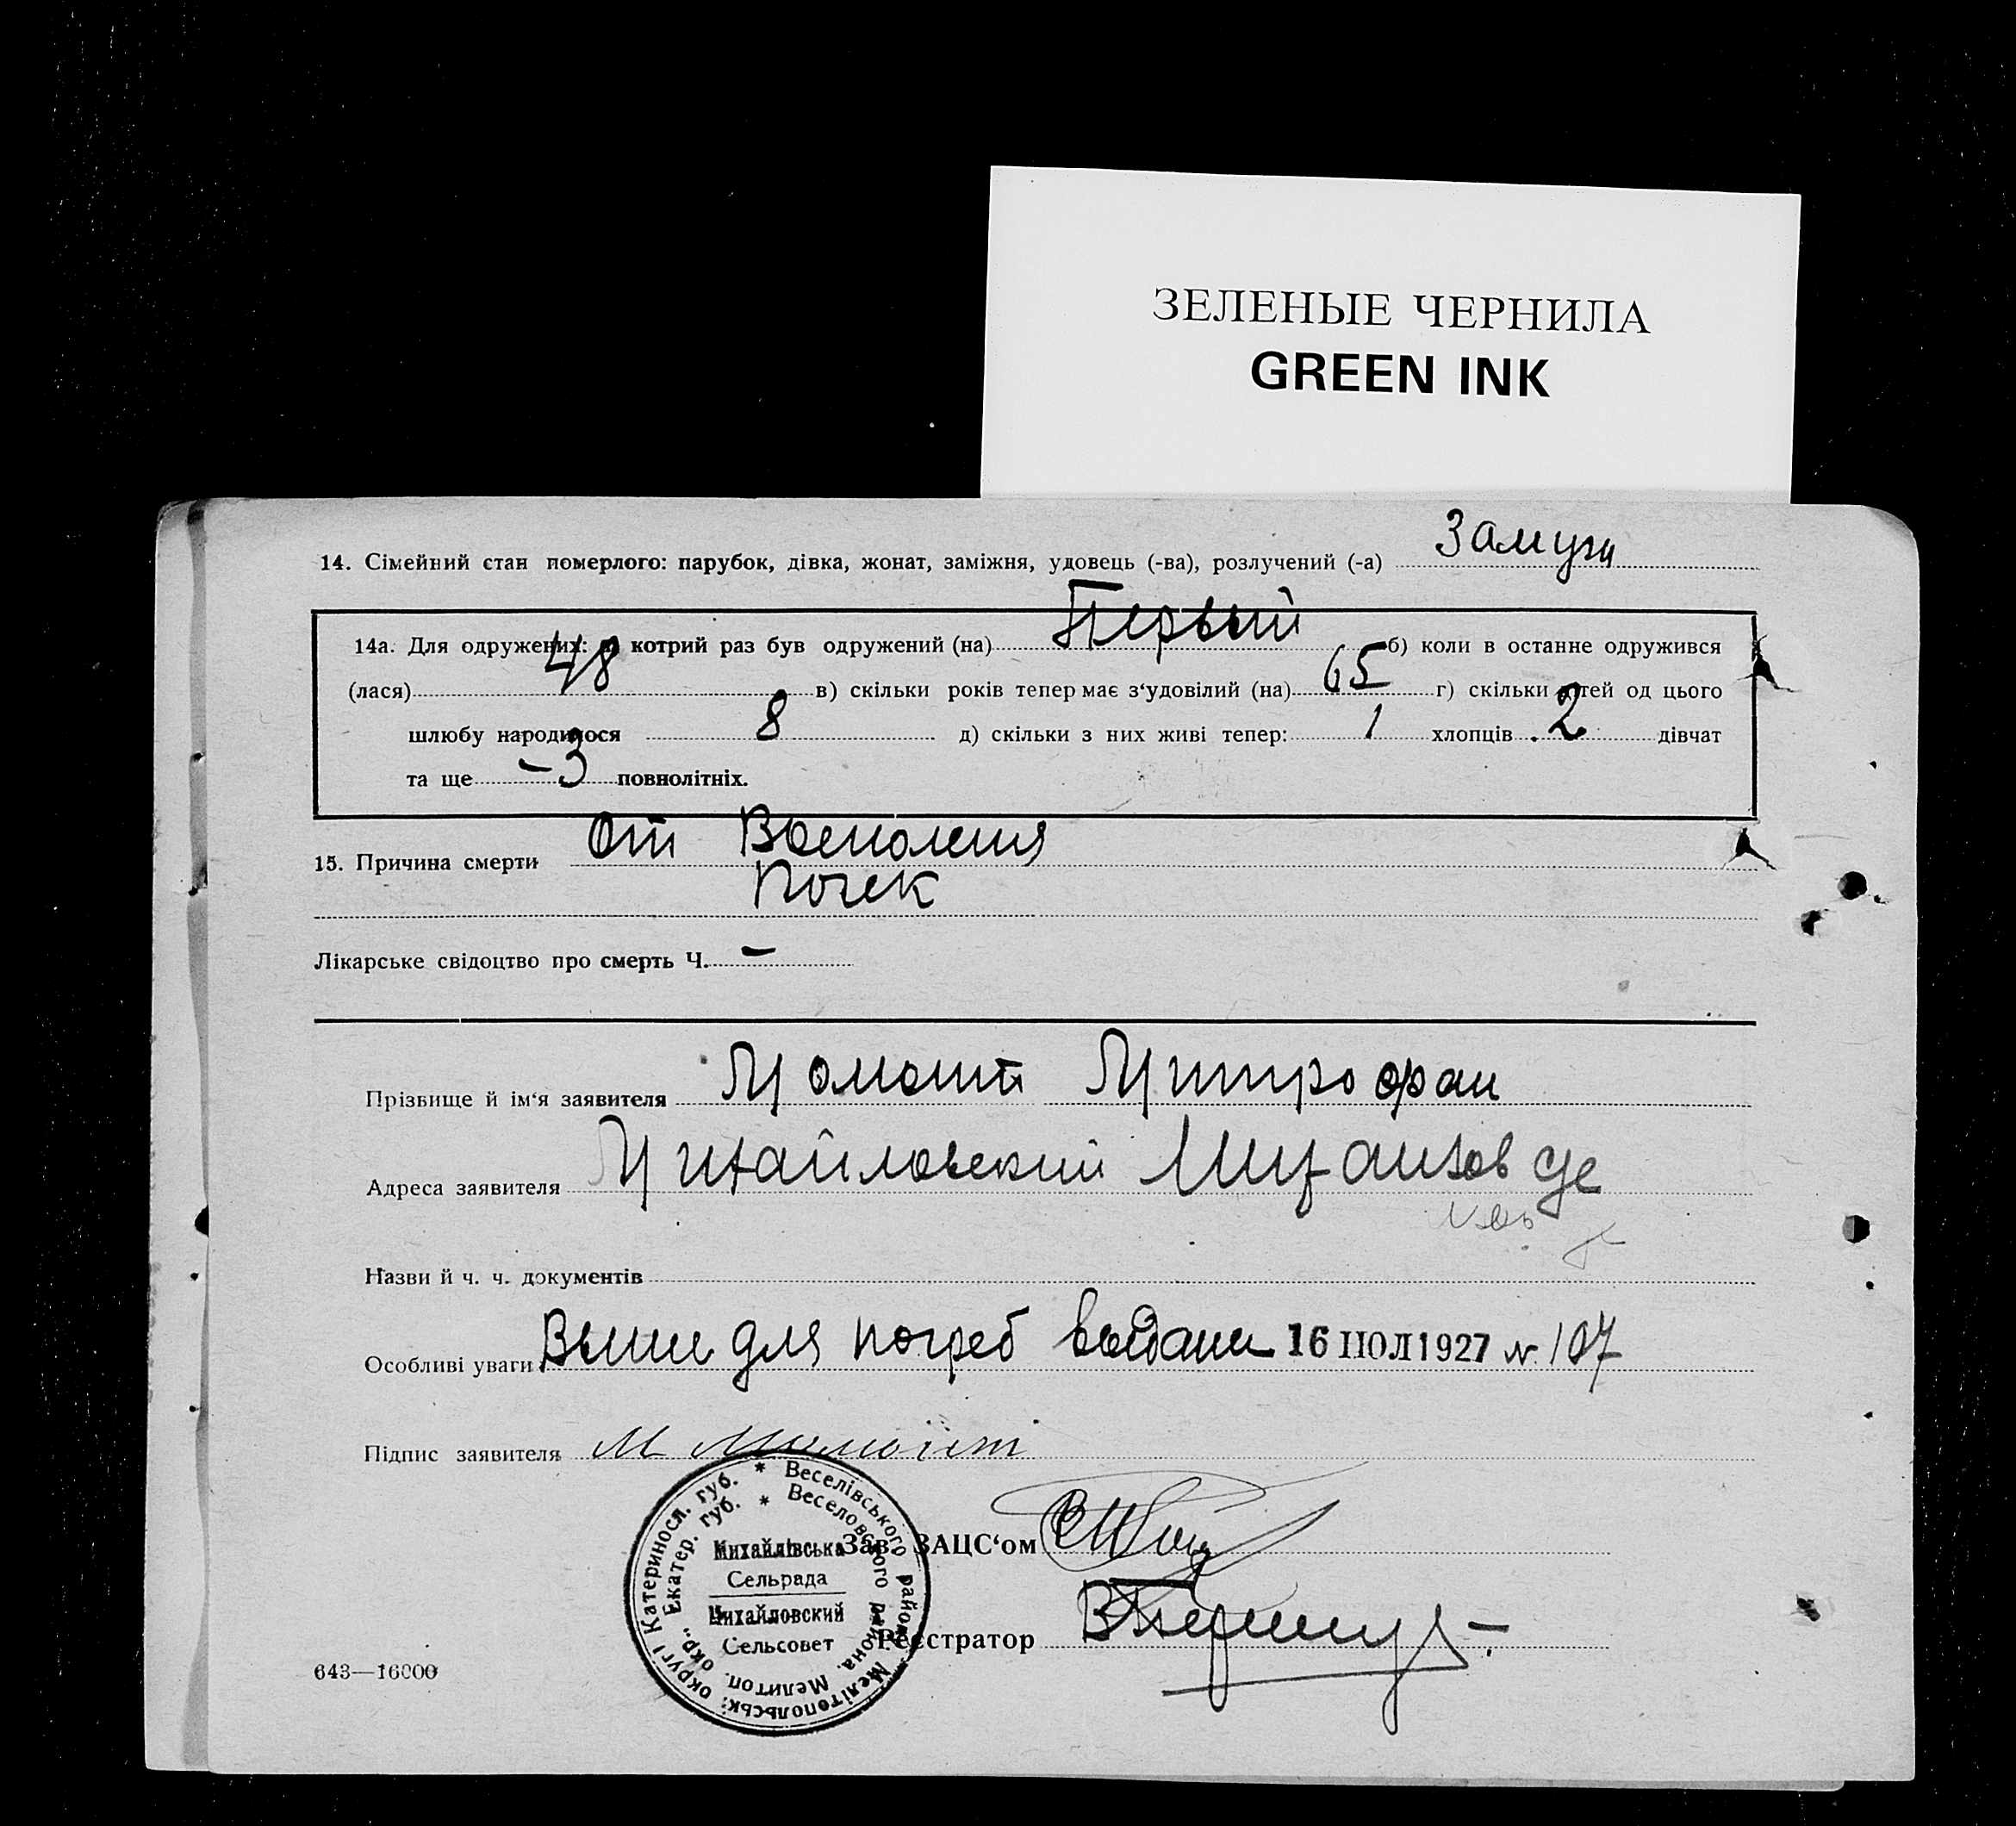 ЗЕЛЕНЫЕ ЧЕРНИЛА
GREEN INK
14. Сімейний стан померлого: парубок, дівка, жонат, заміжня, удовець (-ва), розлучений (-а) Замуж
14а. Для одружених: а) котрий раз був одружений (на) Первый б) коли в останне одружився
(лася) 48 в) скільки років тепер має з‘удовілий (на) 65 г) скільки дітей од цього
шлюбу народилося 8 д) скільки з них живі тепер: 1 хлопців 2 дівчат
та ще – 3 повнолітніх.
15. Причина смерти от Восполения
почек
Лікарське свідоцтво про смерть Ч. –
Прізвище й ім‘я заявителя Момотт Митрофан
Адреса заявителя Михайловский
Назви й ч. ч. документів
Особливі уваги для погреб выдана 16 ІЮЛ 1927 № 107
Підпис заявителя М
Зав. ЗАЦС‘ом
Реєстратор
643—16000
* Веселівського району Мелітопольськ. округі Катериносл. губ.
* Веселовского района. Мелитоп. окр., Екатер. губ.
Михайлівська
Сельрада
Михайловский
Сельсовет